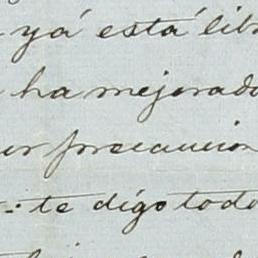 yá está lib
ha mejorado
ur precaucion
te digo todo